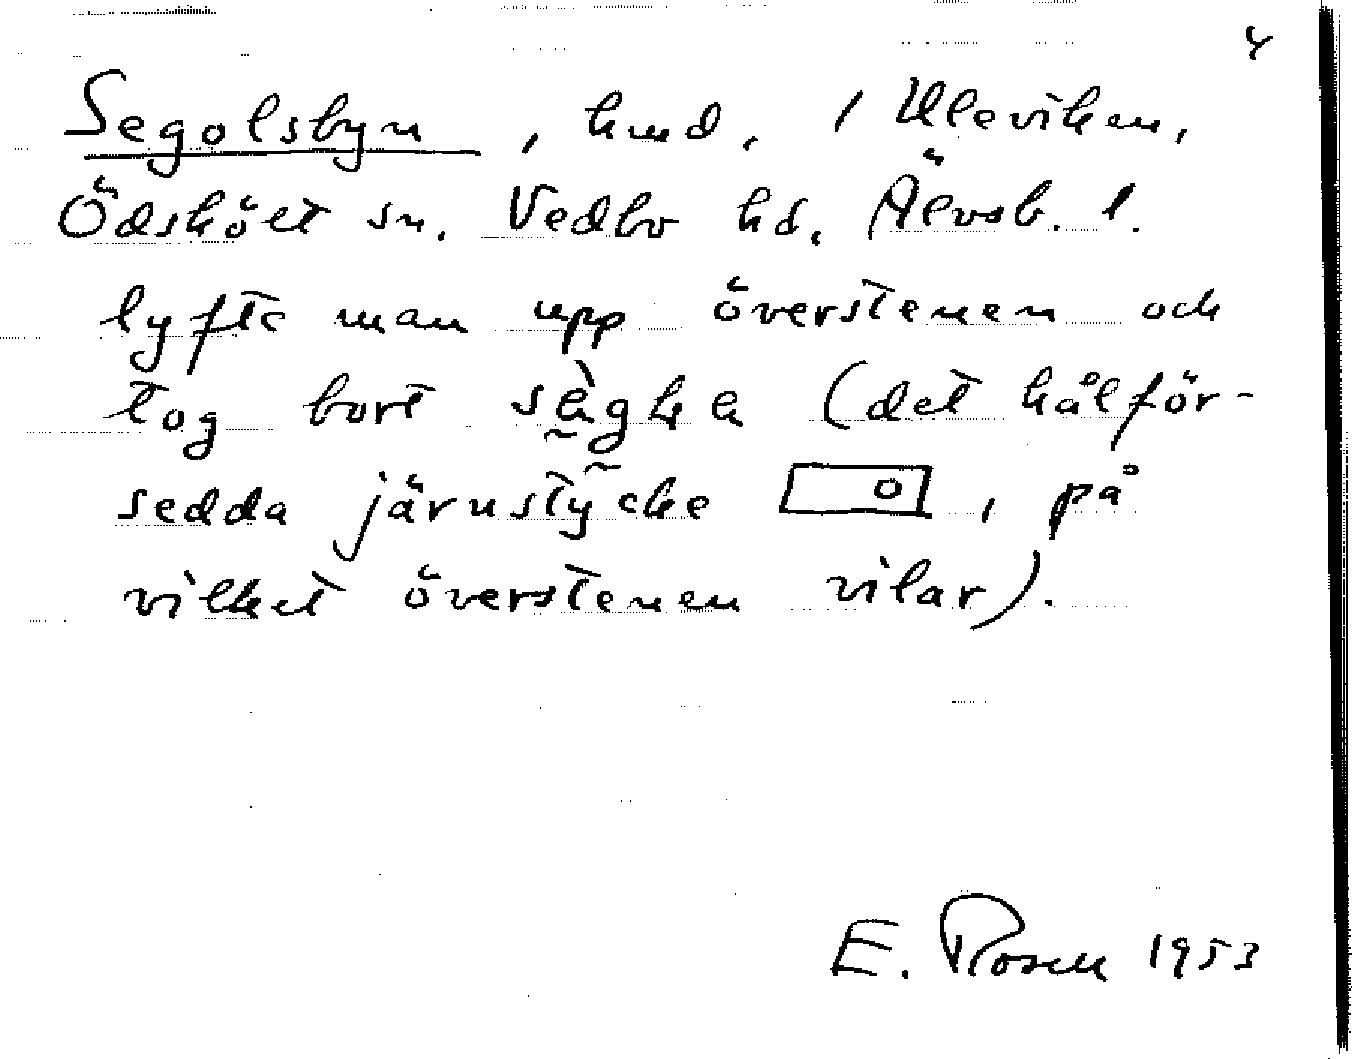 4
Segolsbyn, hmd. / Uleviken,
Ödskölt sn. Vedbo hd. Älvsb. l.
lyfte man upp överstenen och
tog bort (det hålför-
sedda järnstycke , på
vilket överstenen vilar).
E. Rosell 1953